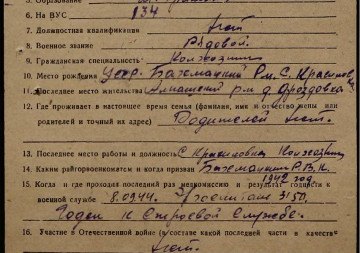 5. Образование
6. На ВУС 134
7. Должностная квалификация Нет
8. Военное звание Рядовой.
9. Гражданская специальность:
10. Место рождения Р-н. С.
11. Последнее место жительства р-н д. Дроздовка
12. Где проживает в настоящее время семья (фамилия, имя и отчество жены или
родителей и точный их адрес) Родителей нет.
13. Последнее место работы и должность С.
14. Каким райгорвоенкоматом и когда призван Р.В.К.
1942 год.
15. Когда и где проходил последний раз медкомиссию и результат годности к
военной службе 8.09.44. 3150.
Годен к Строевой Службе.
16. Участие в Отечественной войне (в составе какой последней части и в качестве
Нет.